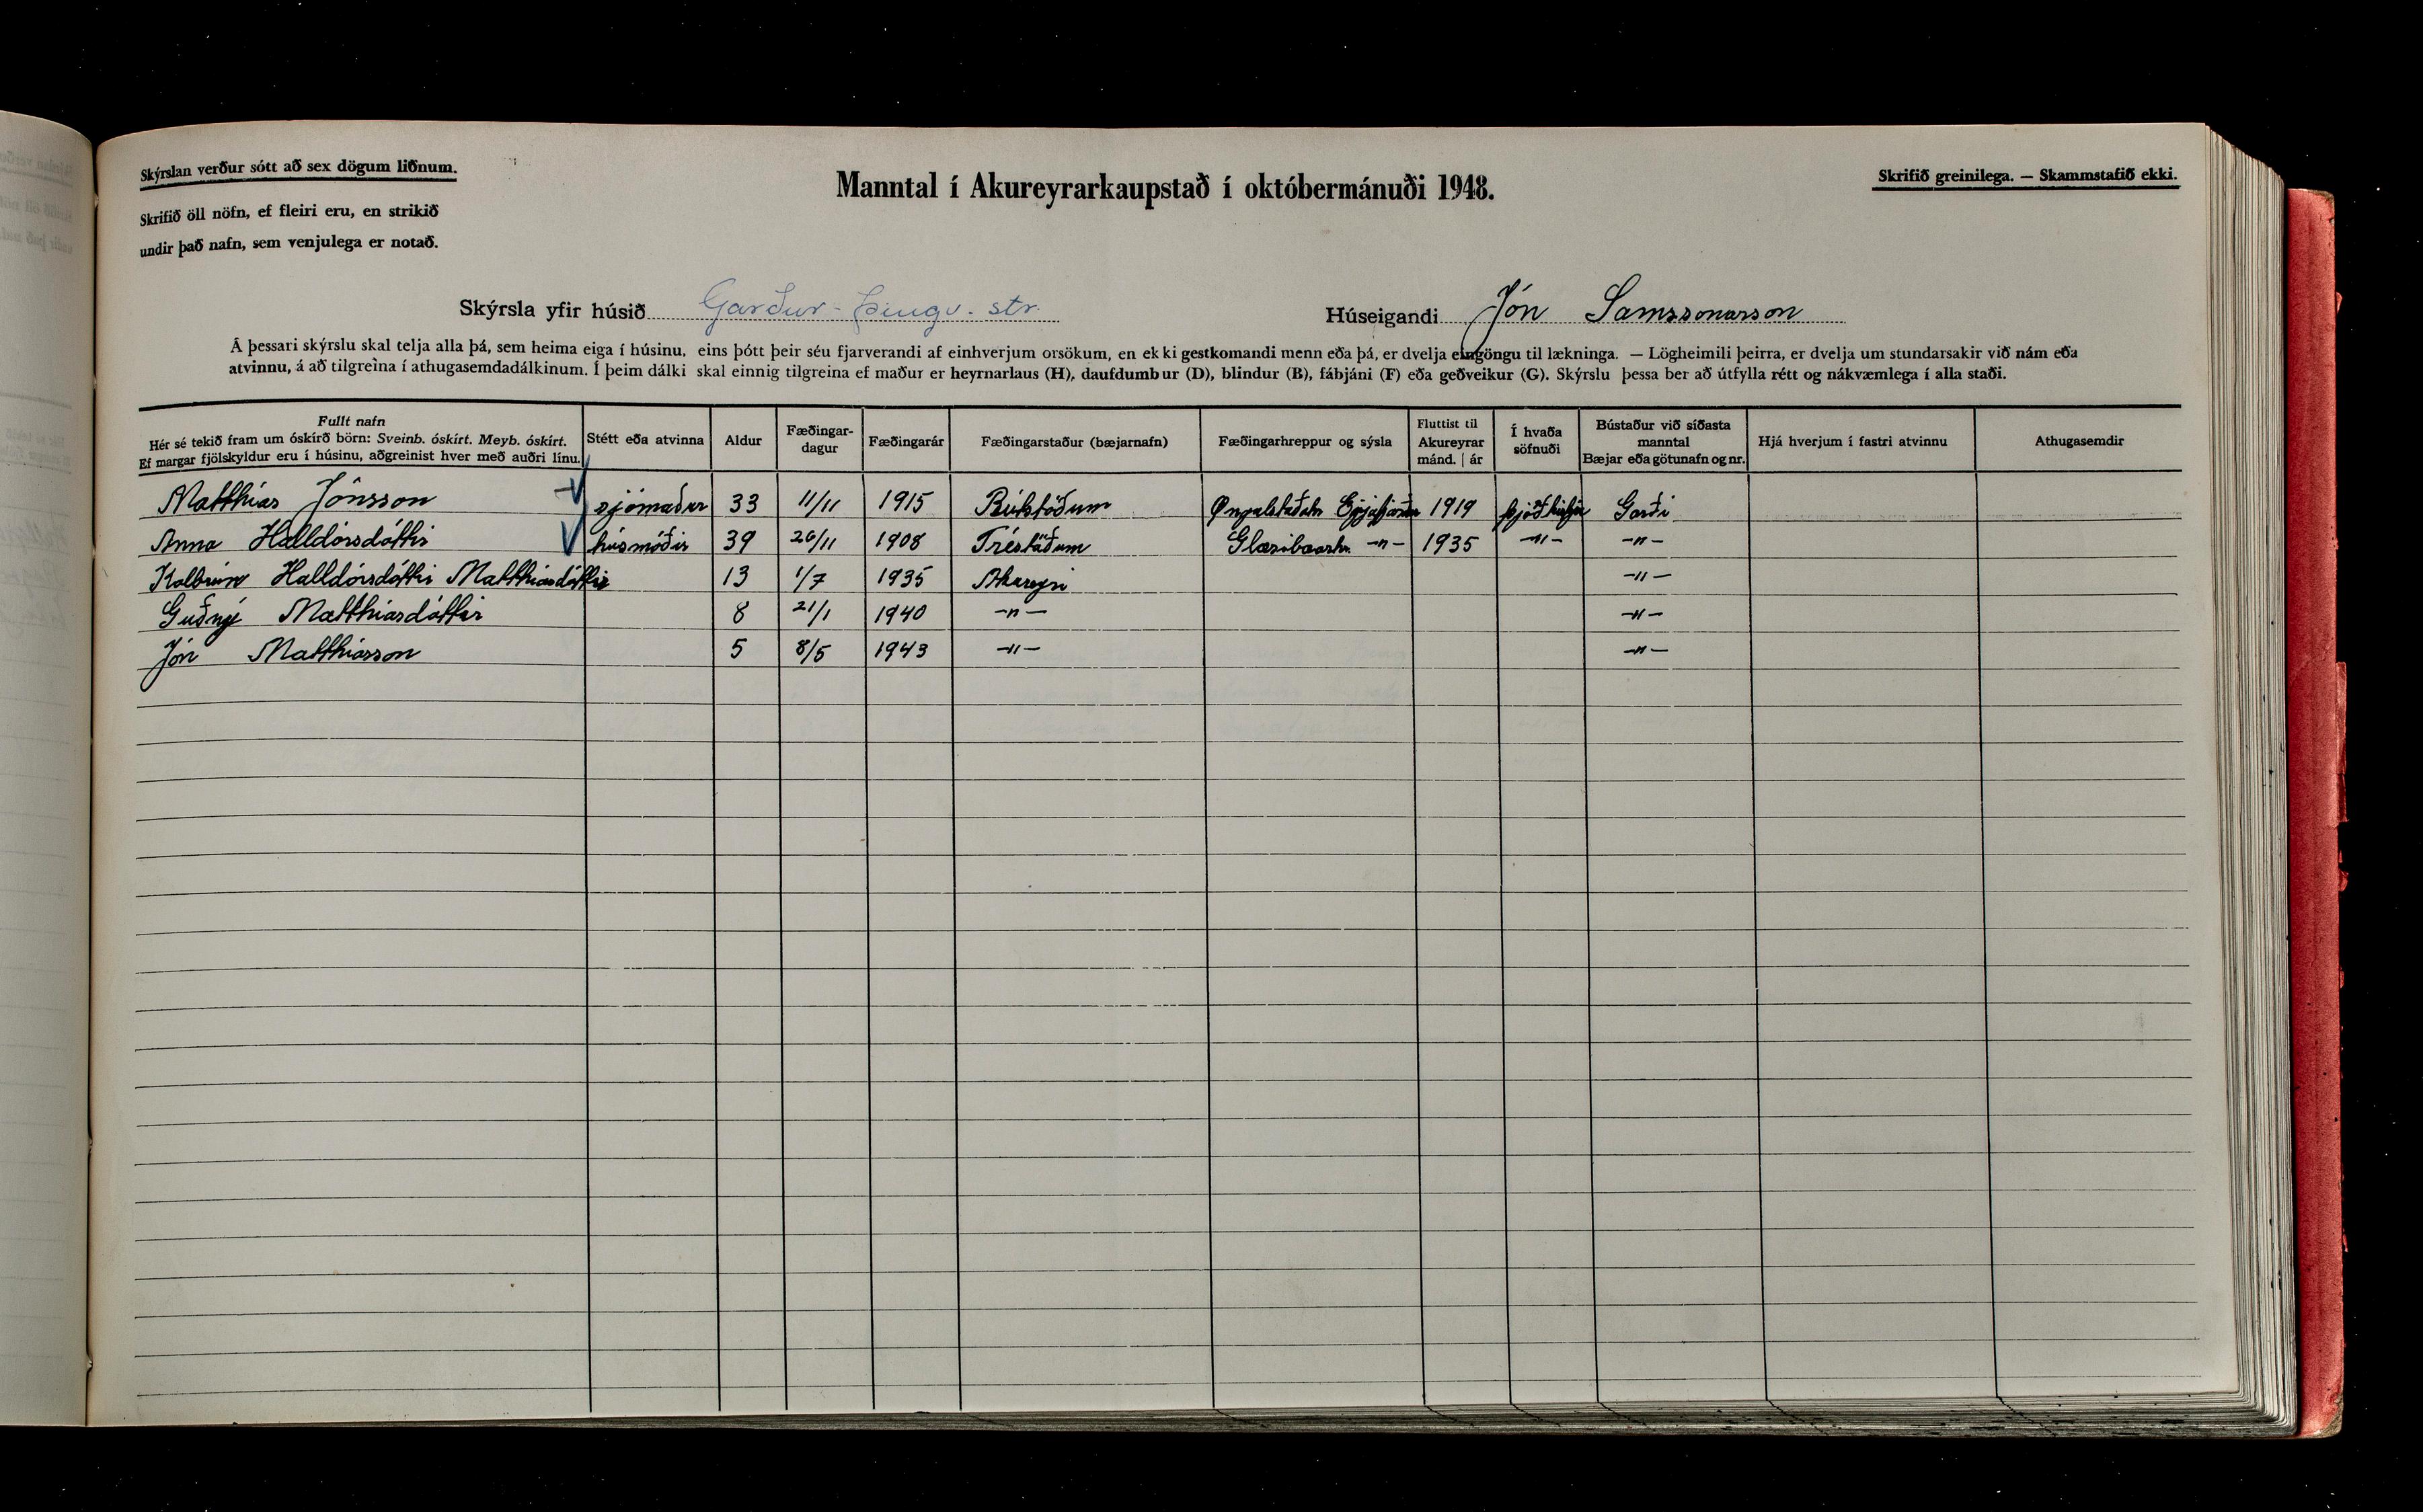 Skýrslan verður sótt að sex dögum liðnum.
Manntal í Akureyrarkaupstað í októbermánuði 1948.
Skrifið greinilega. — Skammstafið ekki.
Skrifið öll nöfn, ef fleiri eru, en strikið
undir það nafn, sem venjulega er notað.
Skýrsla yfir húsið Garður - Þingv. str. Húseigandi Jón Samssonarson
Á þessari skýrslu skal telja alla þá, sem heima eiga í húsinu, eins þótt þeir séu fjarverandi af einhverjum orsökum, en ekki gestkomandi menn eða þá, er dvelja eingöngu til lækninga. — Lögheimili þeirra, er dvelja um stundarsakir við nám eða
atvinnu, á að tilgreina í athugasemdadálkinum. Í þeim dálki skal einnig tilgreina ef maður er heyrnarlaus (H), daufdumbur (D), blindur (B), fábjáni (F) eða geðveikur (G). Skýrslu þessa ber að útfylla rétt og nákvæmlega í alla staði.
Fullt nafn
Hér sé tekið fram um óskírð börn: Sveinb. óskírt. Meyb. óskírt.
Ef margar fjölskyldur eru í húsinu, aðgreinist hver með auðri línu.
Stétt eða atvinna
Aldur
Fæðingar-
dagur
Fæðingarár
Fæðingarstaður (bæjarnafn)
Fæðingarhreppur og sýsla
Fluttist til
Akureyrar
mánd. | ár
Í hvaða
söfnuði
Bústaður við síðasta
manntal
Bæjar eða götunafn og nr.
Hjá hverjum í fastri atvinnu
Athugasemdir
Matthías Jónsson sjómaður 33 11/11 1915 1919 þjóðkirkju Garði
Anna Halldórsdóttir húsmóðir 39 26/11 1908 Tréstöðum Glæsibæarhr. -"- 1935 -"- -"-
Kolbrún Halldórsdóttir Matthíasdóttir 13 1/7 1935 Akureyri -"-
Guðný Matthíasdóttir 8 21/1 1940 -"- -"-
Jón Matthíasson 5 8/5 1943 -"- -"-